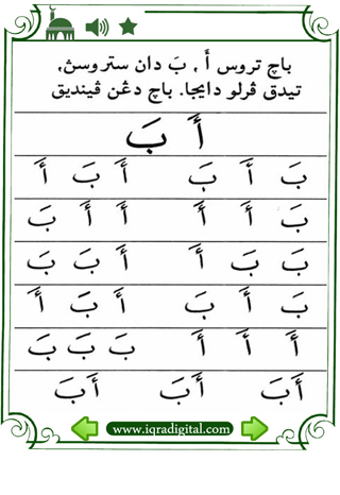 باچ تروس أَ ، بَ دان ستروسڽ،
تيدق ڤرلو دايجا. باچ دڠن ڤينديق
أَ بَ
بَ أَ بَ أَ بَ أَ
بَ أَ أَ أَ أَ بَ
بَ بَ أَ أَ بَ بَ
بَ أَ بَ أَ بَ أَ
أَ أَ أَ بَ بَ بَ
أَبَ أَبَ أَبَ
www.iqradigital.com